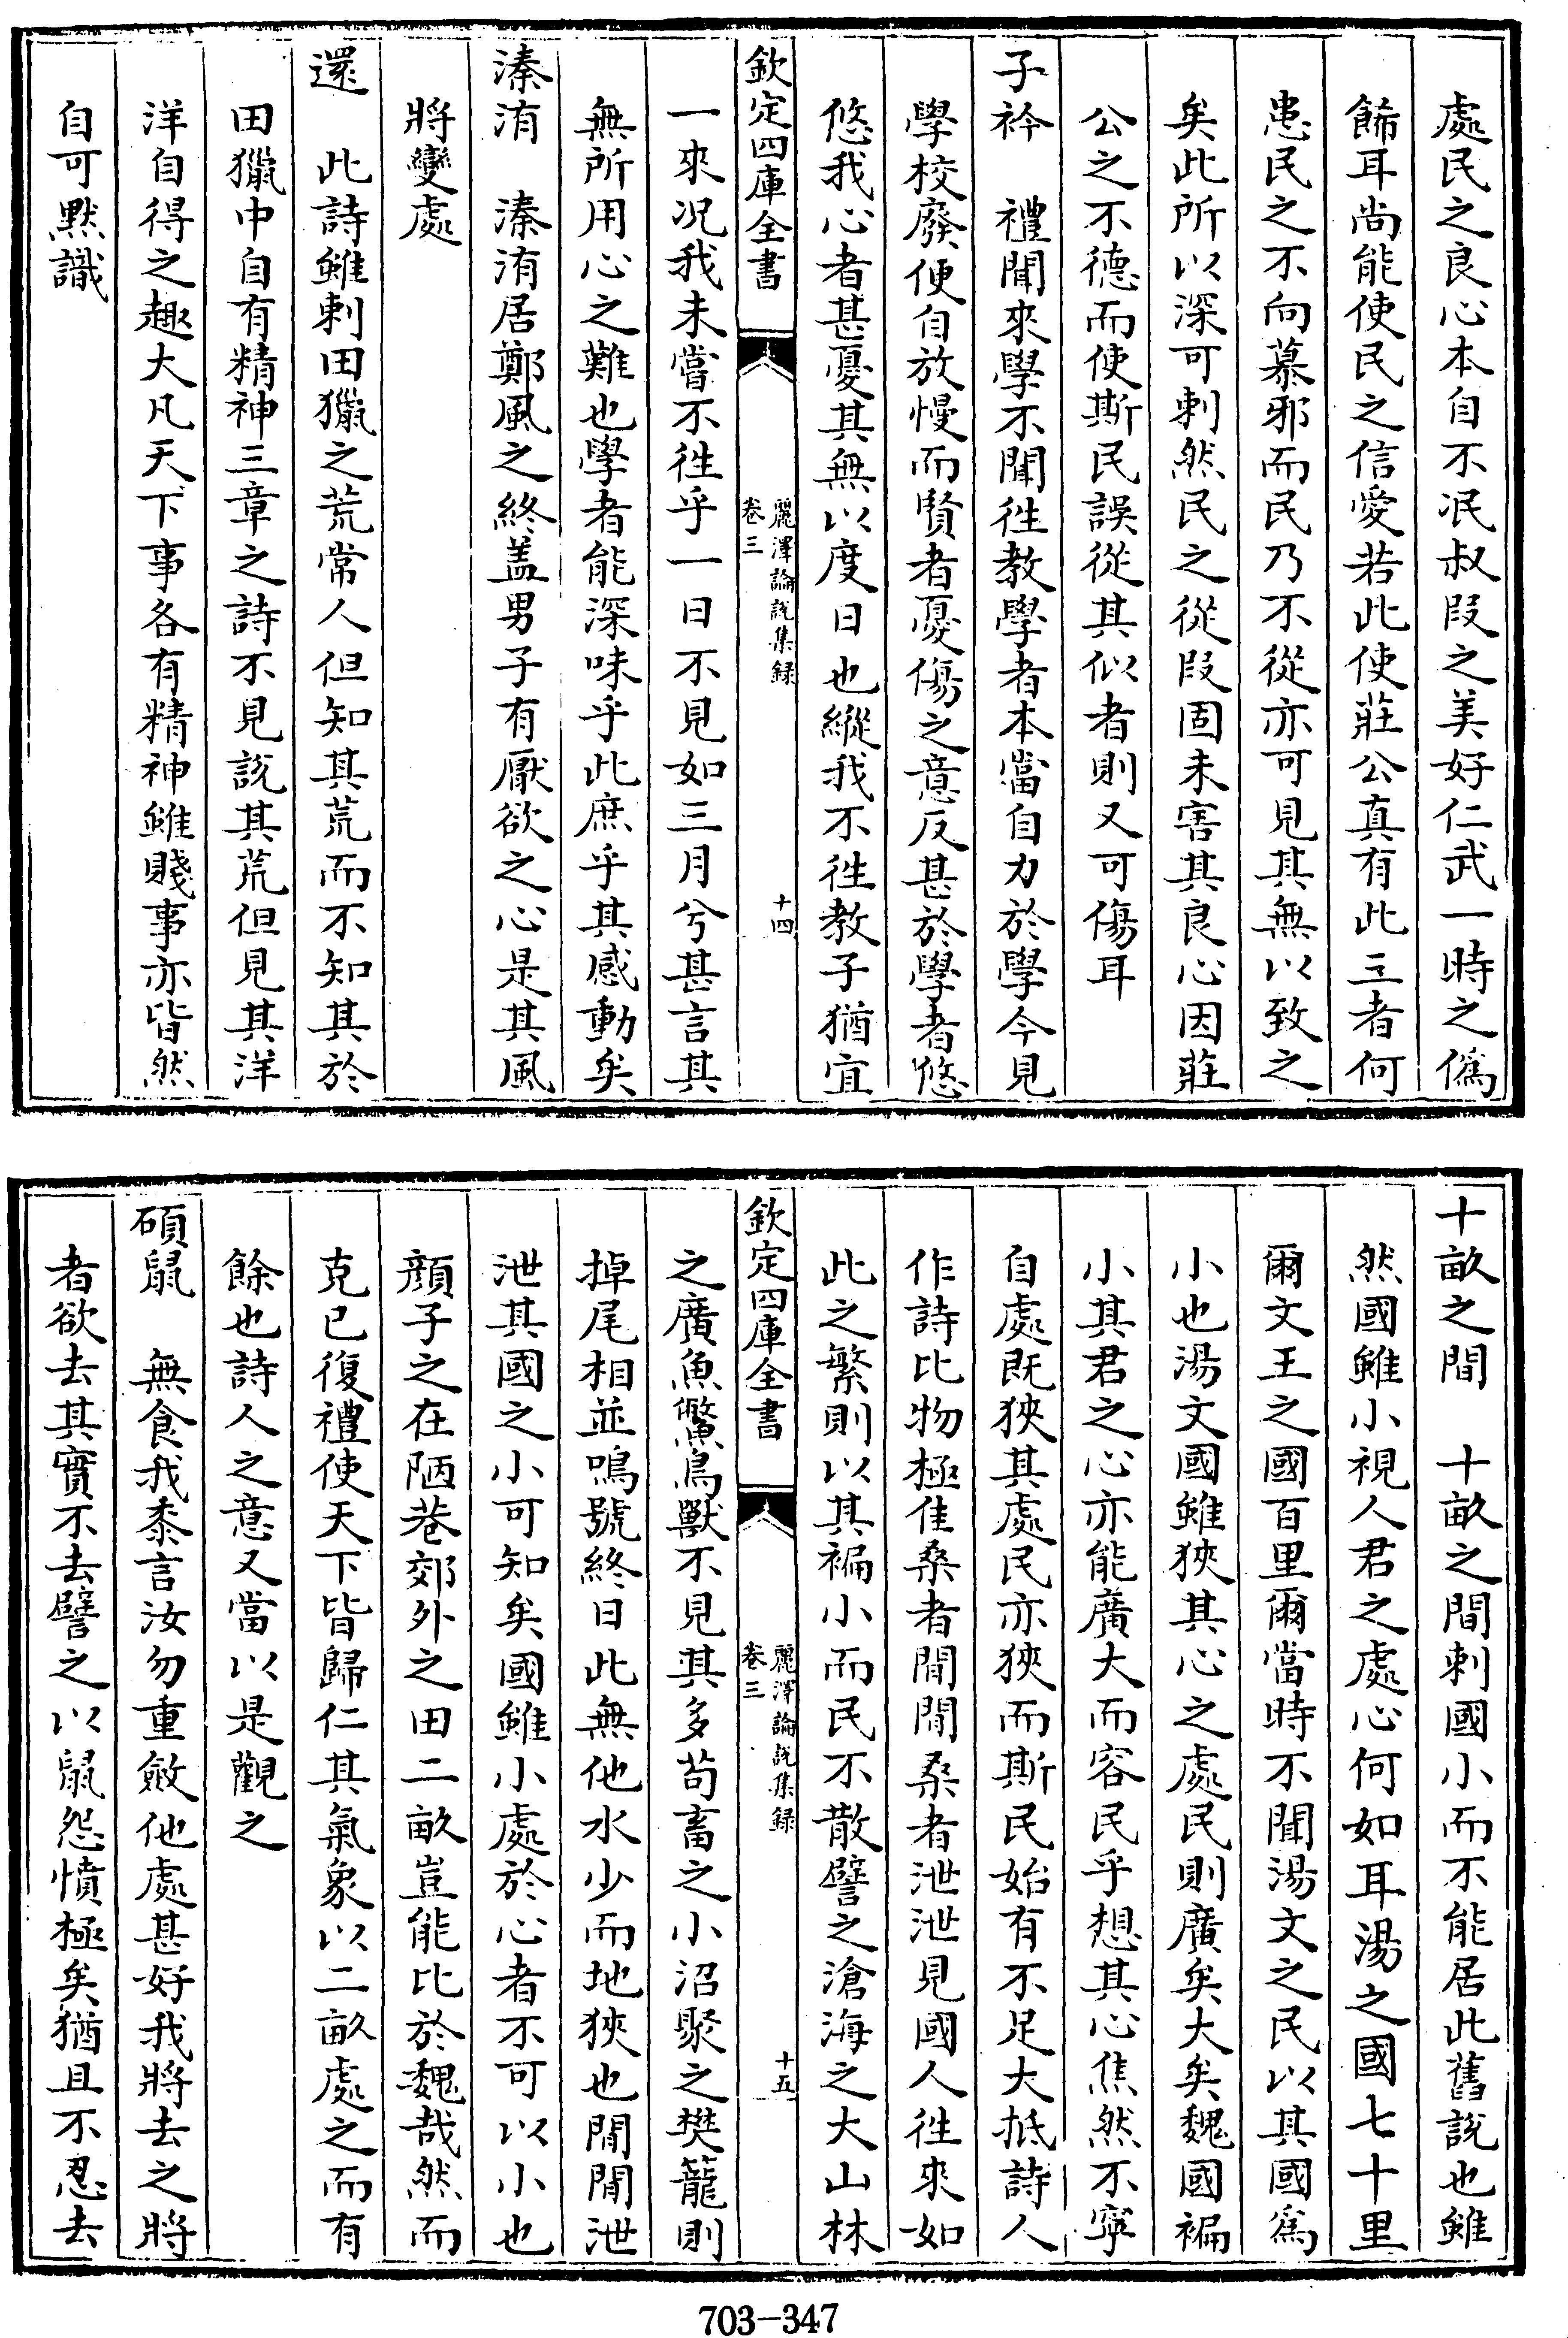 處民之良心本自不泯叔段之美好仁武一時之僞
餙耳尚能使民之信愛若此使莊公真有此三者何
患民之不向慕邪而民乃不從亦可見其無以致之
矣此所以深可刺然民之從段固未害其良心因莊
公之不德而使斯民誤從其似者則又可傷耳
子衿　禮聞來學不聞徃教學者本當自力於學今見
學校廢便自放慢而賢者憂傷之意反甚於學者悠
悠我心者甚憂其無以度日也縱我不徃教子猶宜
欽定四庫全書
麗澤論說集録
卷三
十四
一來况我未嘗不徃乎一日不見如三月兮甚言其
無所用心之難也學者能深味乎此庶乎其感動矣
溱洧　溱洧居鄭風之終盖男子有厭欲之心是其風
將變處
還　此詩雖刺田獵之荒常人但知其荒而不知其於
田獵中自有精神三章之詩不見說其荒但見其洋
洋自得之趣大凡天下事各有精神雖賤事亦皆然
自可默識
十畝之間　十畝之間刺國小而不能居此舊說也雖
然國雖小視人君之處心何如耳湯之國七十里
爾文王之國百里爾當時不聞湯文之民以其國爲
小也湯文國雖狹其心之處民則廣矣大矣魏國褊
小其君之心亦能廣大而容民乎想其心焦然不寧
自處既狹其處民亦狹而斯民始有不足大抵詩人
作詩比物極佳桑者閒閒桑者泄泄見國人徃來如
此之繁則以其褊小而民不散譬之滄海之大山林
欽定四庫全書
麗澤論說集録
卷三
十五
之廣魚鱉鳥獸不見其多苟畜之小沼聚之樊籠則
掉尾相並鳴號終日此無他水少而地狹也閒閒泄
泄其國之小可知矣國雖小處於心者不可以小也
顔子之在陋巷郊外之田二畝豈能比於魏哉然而
克已復禮使天下皆歸仁其氣象以二畝處之而有
餘也詩人之意又當以是觀之
碩鼠　無食我黍言汝勿重斂他處甚好我將去之將
者欲去其實不去譬之以鼠怨憤極矣猶且不忍去
703-347